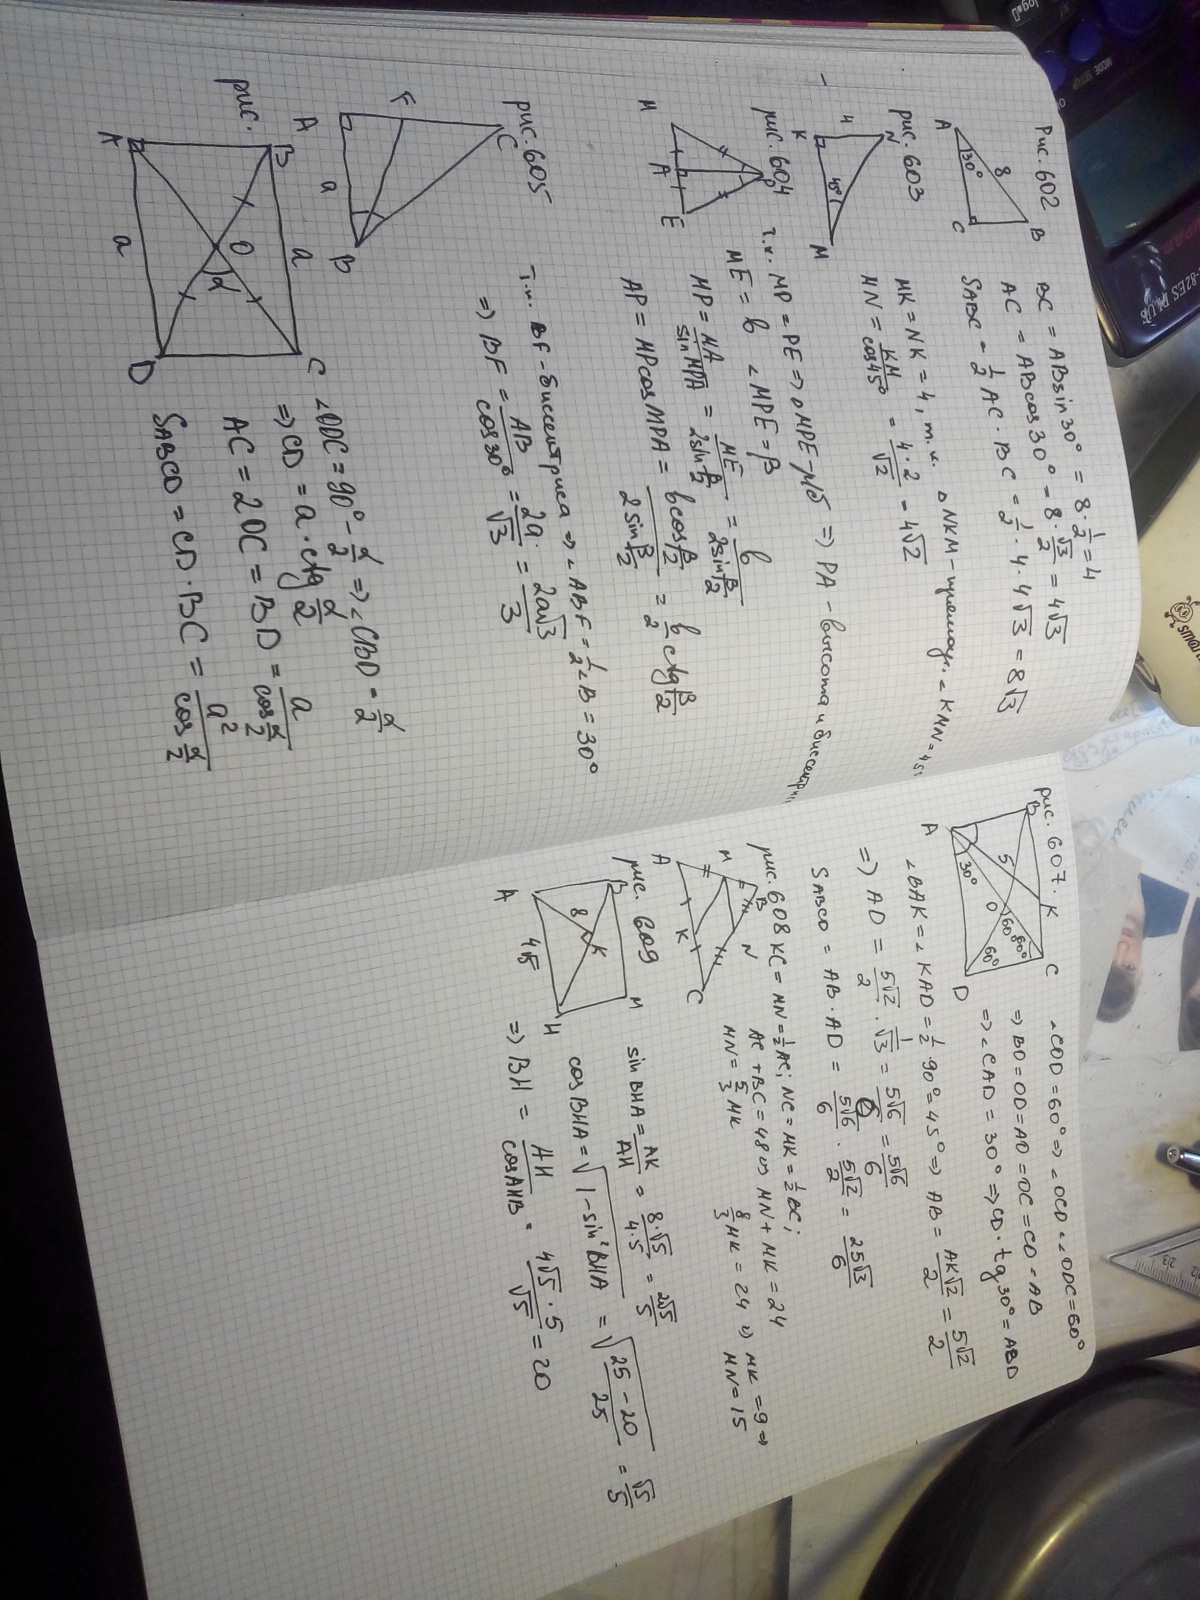 Рис. 602
A
30°
8
B
C
BC = ABsin30° = 8·1/2 = 4
AC = ABcos30° = 8·√3/2 = 4√3
SABC = 1/2 AC·BC = 1/2·4·4√3 = 8√3
рис. 603
K
4
N
45°
M
MK = NK = 4, т.к. △NKM - прямоуг. ∠KMN = 45°
MN = KM/cos45° = 4·2/√2 = 4√2
рис. 604
M
A
E
P
т.к. MP = PE ⇒ △MPE - р/б ⇒ PA - высота и биссектри
ME = b ∠MPE = β
MP = MA/sinMPA = ME/2sin β/2 = b/2sin β/2
AP = MPcosMPA = bcos β/2 / 2sin β/2 = b/2 ctg β/2
рис. 605
C
F
A
a
B
т.к. BF - биссектриса ⇒ ∠ABF = 1/2∠B = 30°
⇒ BF = AB/cos30° = 2a/√3 = 2a√3/3
рис.
B
a
C
O
α
A
a
D
∠ODC = 90° - α/2 ⇒ ∠CBD = α/2
⇒ CD = a·ctg α/2
AC = 2OC = BD = a/cos α/2
SABCD = CD·BC = a²/cos α/2
рис. 607.
B
K
C
5
O
60°
60°
60°
30°
A
D
∠COD = 60° ⇒ ∠OCD = ∠ODC = 60°
⇒ BO = OD = AO = OC = CD = AB
⇒ ∠CAD = 30° ⇒ CD·tg30° = ABD
∠BAK = ∠KAD = 1/2·90° = 45° ⇒ AB = AK√2/2 = 5√2/2
⇒ AD = 5√2/2 · 1/√3 = 5√6/6 = 5√6/6
SABCD = AB·AD = 5√6/6 · 5√2/2 = 25√3/6
рис. 608
A
M
B
N
K
C
KC = MN = 1/2AC; NC = MK = 1/2BC;
AC + BC = 48 ⇒ MN + MK = 24
MN = 5/3 MK
8/3 MK = 24 ⇒ MK = 9 ⇒
MN = 15
рис. 609
B
M
8
K
A
4√5
H
sinBHA = AK/AH = 8·√5/4·5 = 2√5/5
cosBHA = √1-sin²BHA = √25-20/25 = √5/5
⇒ BH = AH/cosAHB = 4√5·5/√5 = 20